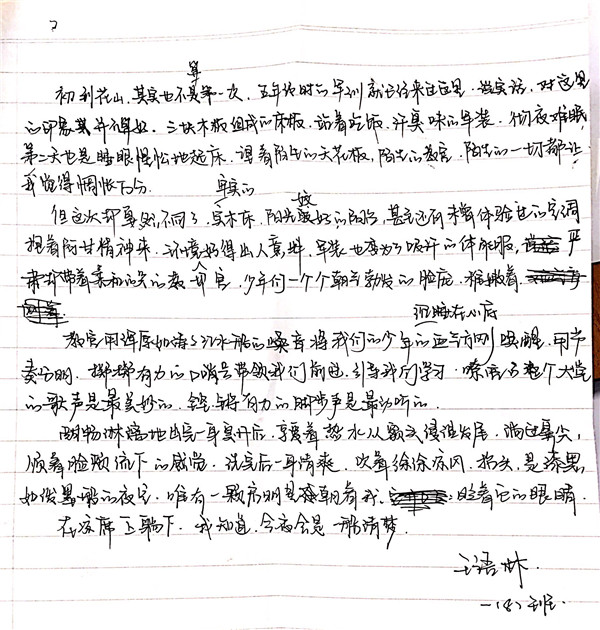 初到花山,其实也不算第一次,五年级时的军训就已经来过这里.说实话,对这里
的印象并不算好.三块木板组成的床板,站着吃饭,汗臭味的军装.彻夜难眠,
第二天也是睡眼惺忪地起床.望着陌生的天花板,陌生的教官,陌生的一切都让
我觉得惆怅万分.
但这次却真的不同了.牢实的实木床,阳光最好的阳台,甚至还有未曾体验过的空调
抱着阿甘精神来.环境好得出人意料,军装也变为了吸汗的体能服,严
肃却带着柔和的笑的教官,少年们一个个朝气勃发的脸庞.
教官用浑厚如涛江水般的嗓音将我们的少年的沉睡在心底血气方刚唤醒.用节
奏分明,铿锵有力的口哨声带领我们前进,引导我们学习.嘹亮了整个大堂
的歌声是最美妙的,铿锵有力的脚步声是最动听的.
酣畅淋漓地出完一身臭汗后,享受着热水从额头浸湿发尾,淌过鼻尖,
顺着脸颊流下的感觉.洗完后一身清爽,吹着徐徐凉风,抬头,是漆黑
如泼墨般的夜空,唯有一颗启明星在朝着我,眨着它的眼睛.
在凉席上躺下.我知道,今夜会是一般清梦.
王语林.
一(8)班.